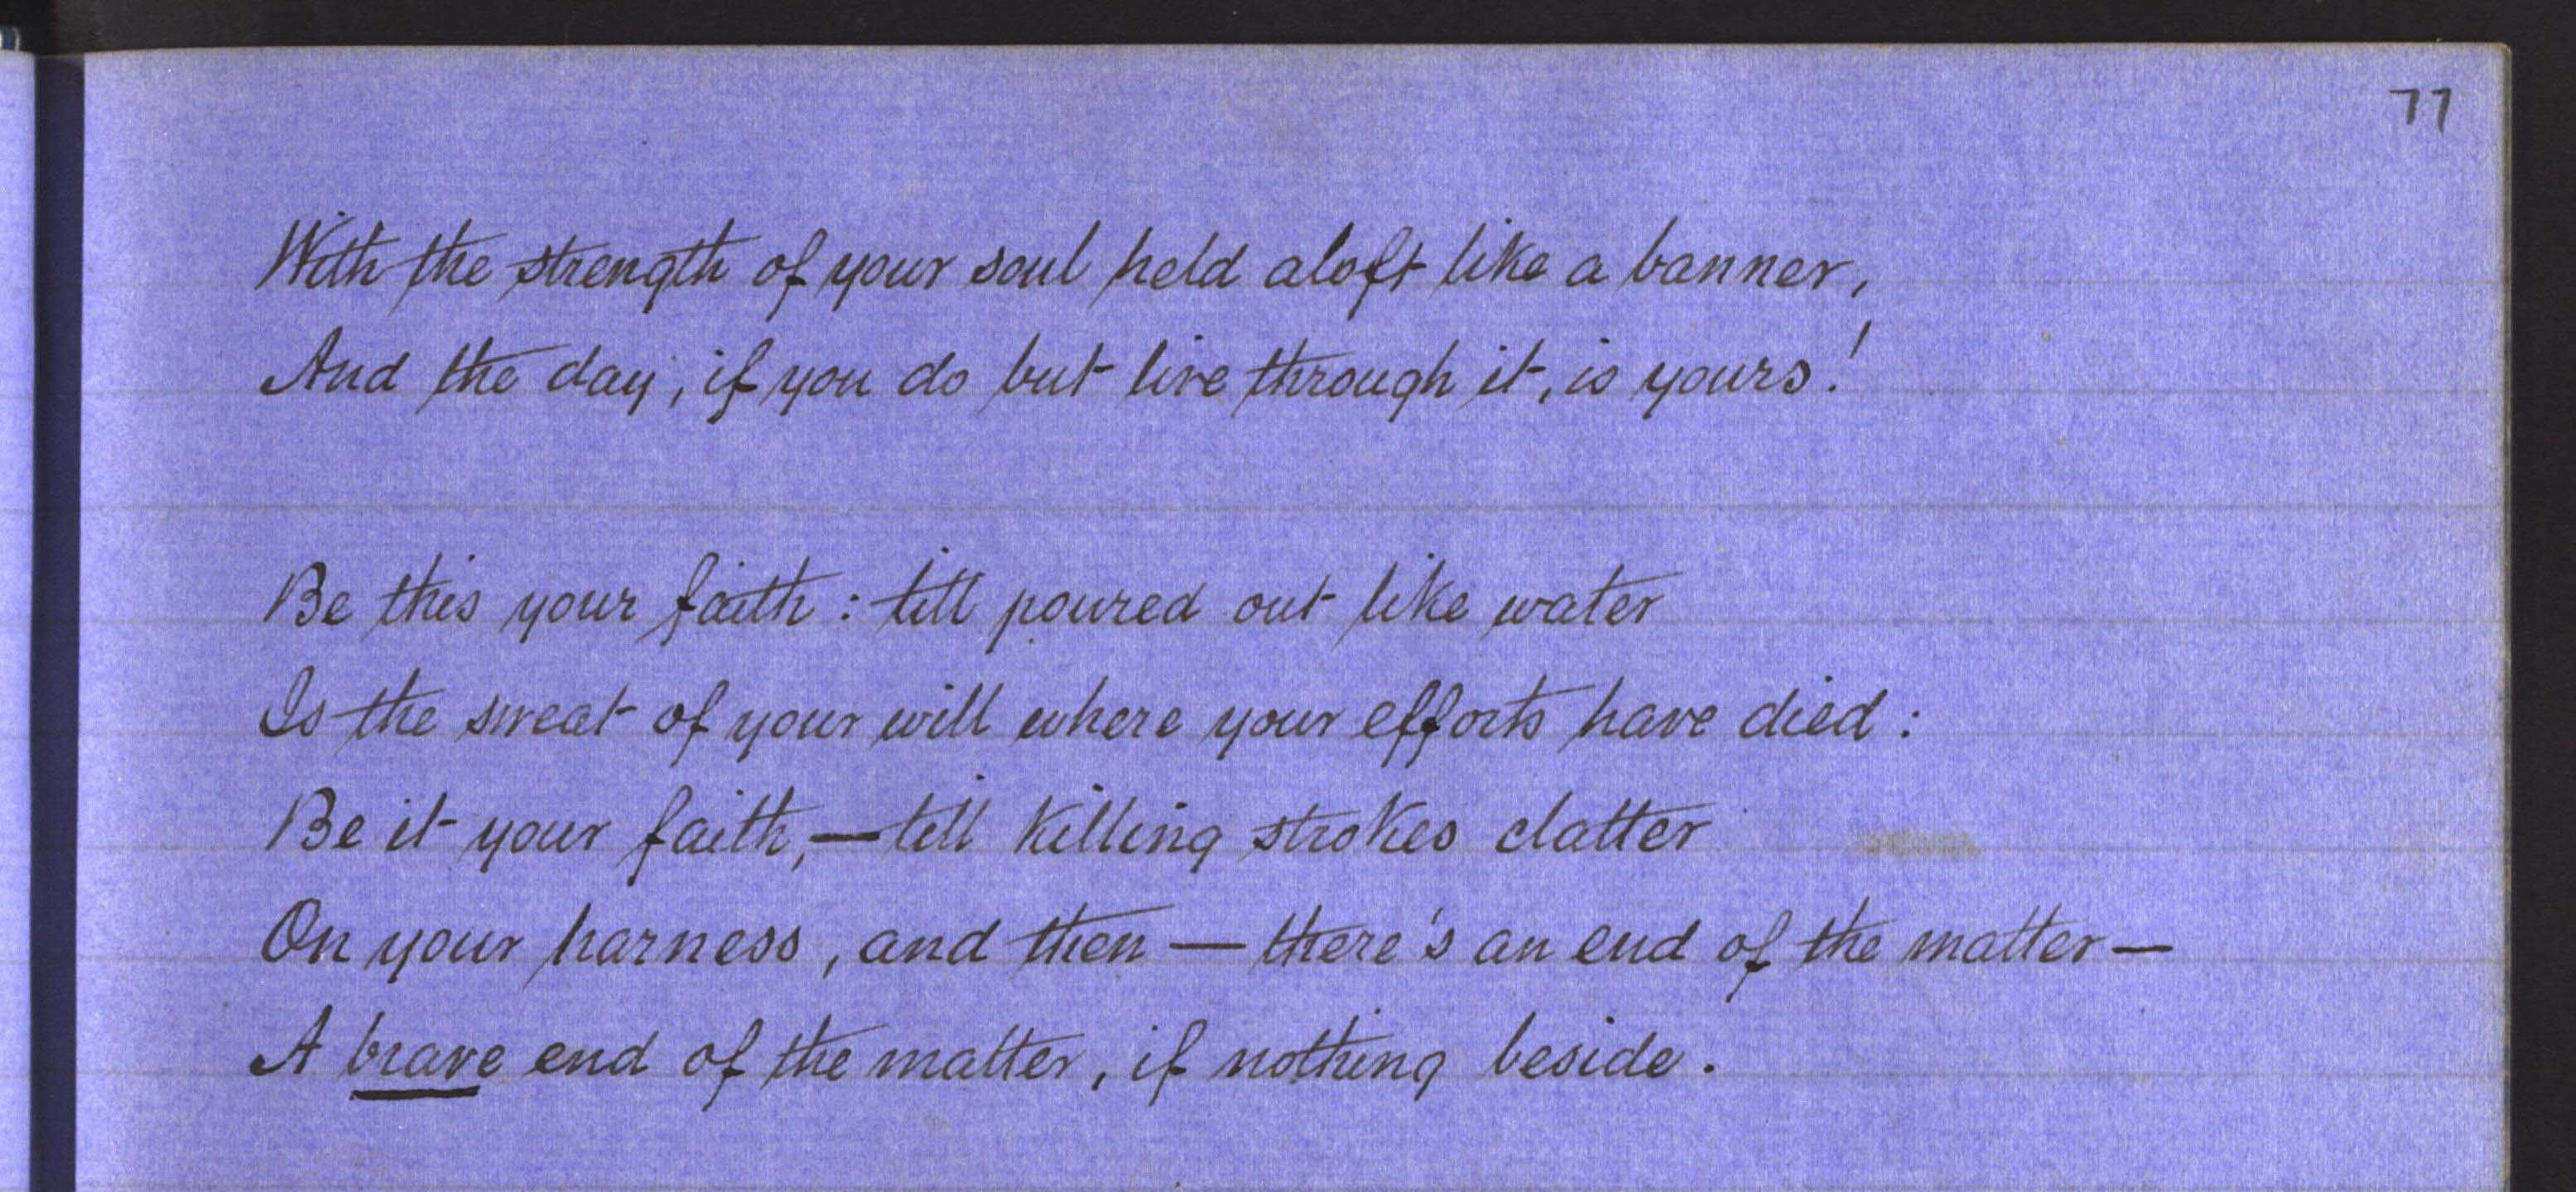 77
With the strength of your soul held aloft like a banner,
And the day, if you do but live through it, is yours!
Be this your faith: till poured out like water
Is the sweat of your will where your efforts have died:
Be it your faith,—till killing strokes clatter
On your harness, and then — there's an end of the matter—
A brave end of the matter, if nothing beside.